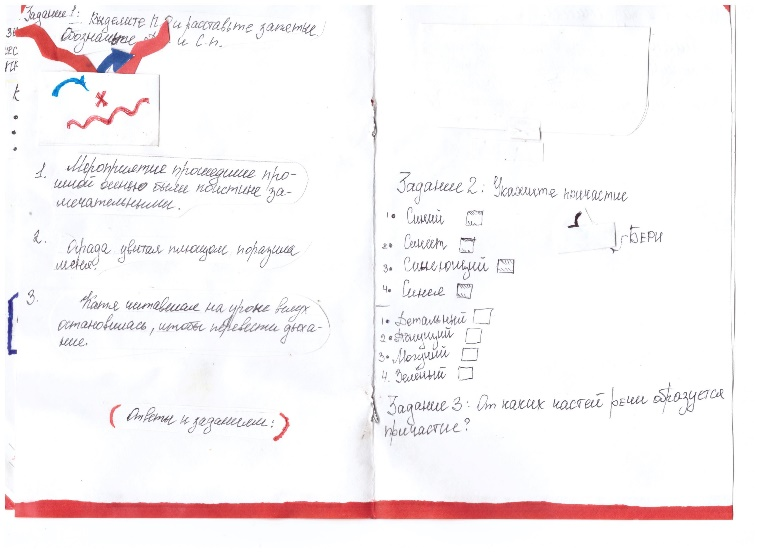 Задание 1: Выделите П.О и расставьте запятые
Обозначьте и С.П.
1. Мероприятие прошедшие про-
шлой осенью были поистине за-
мечательными.
2. Ограда увитая плющом поразила
меня.
3. Катя читавшая на уроке вслух
остановилась, чтобы перевести дыха-
ние.
(Ответы к заданиям:)
Задание 2: Укажите причастие
1. Синий
2. Синеет
3. Синеющий
4. Синея
БЕРИ
1. Детальный
2.
3. Могучий
4. Зелёный
Задание 3: От каких частей речи образуется
причастие?